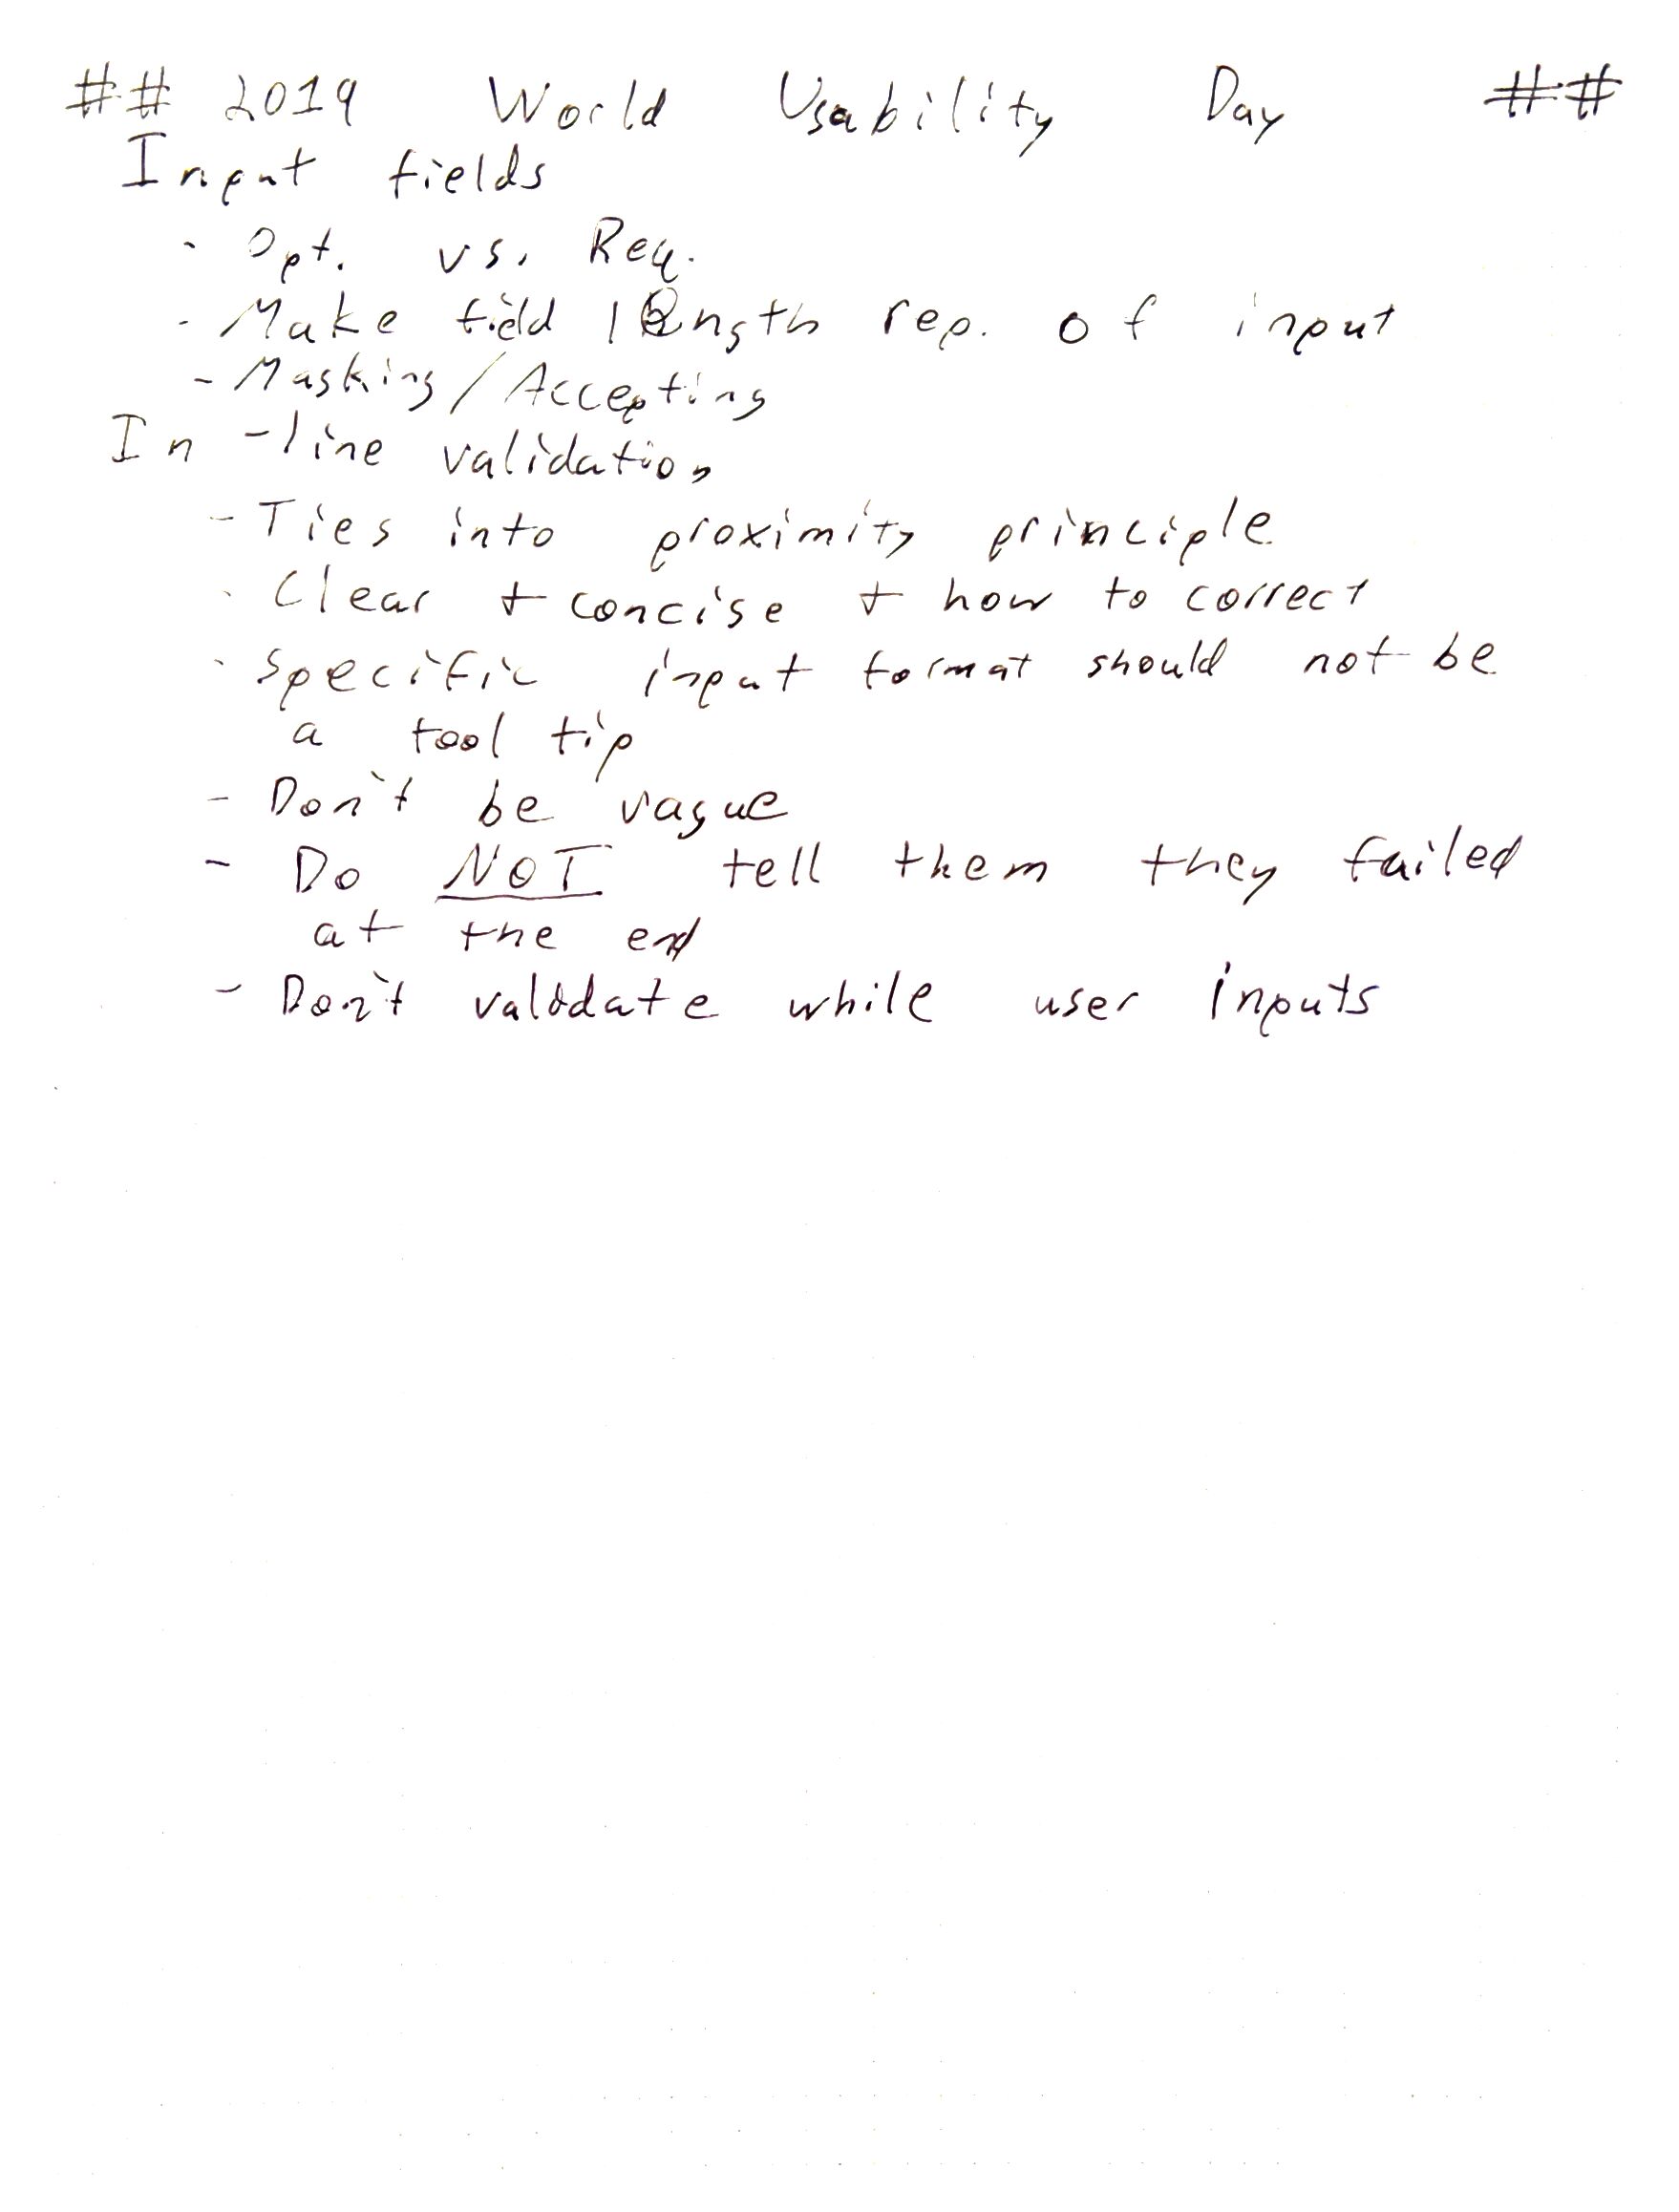 ## 2019 World Usability Day ##
Input fields
- Opt. vs. Req.
- Make field length rep. of input
- Masking/Accepting
In-line validation
- Ties into proximity principle
- Clear + concise + how to correct
- Specific input format should not be
a tool tip
- Don't be vague
- Do NOT tell them they failed
at the end
- Don't validate while user inputs